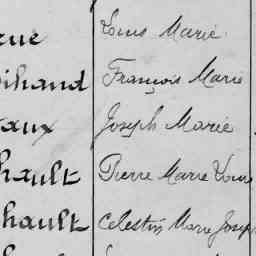 rue Louis Marie
ihand François Marie
aux Joseph Marie
hault Pierre Marie Louis
hault Celestin Marie Joseph